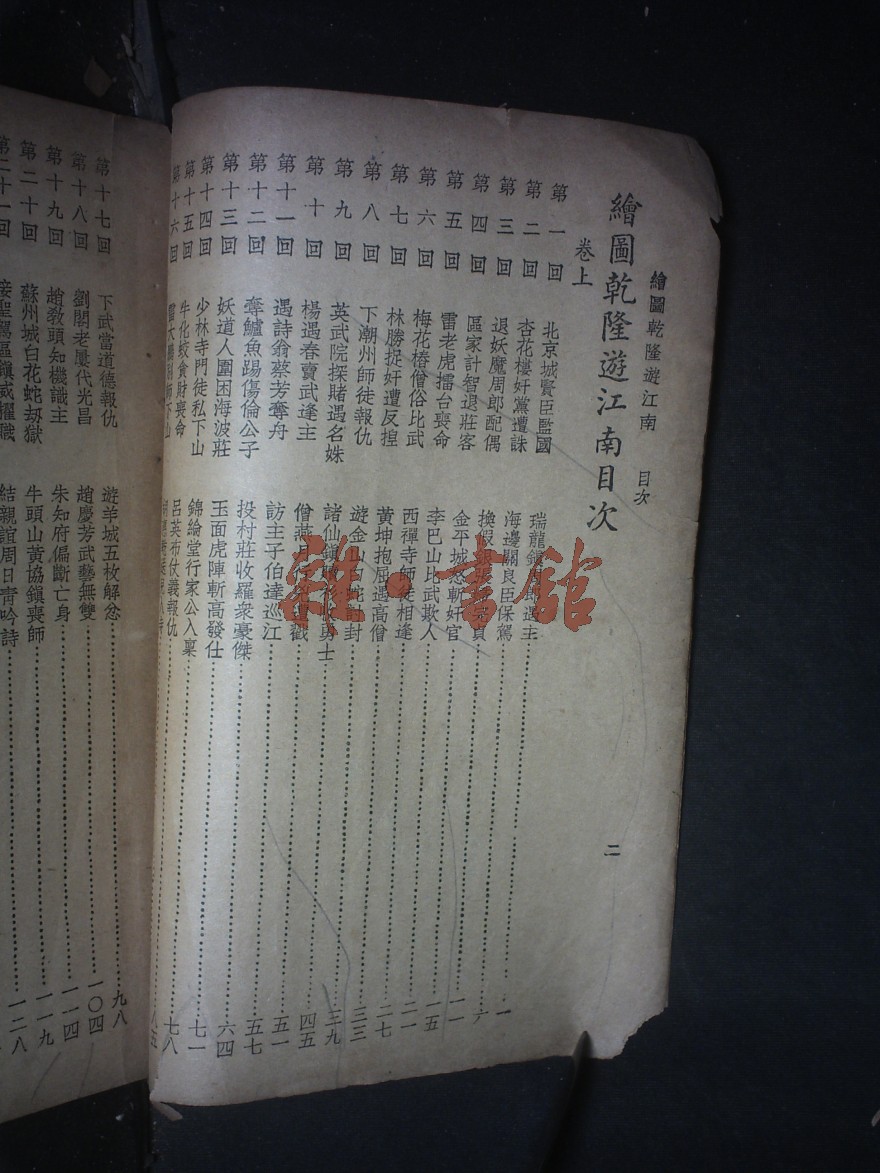 繪圖乾隆遊江南 目次 二
繪圖乾隆遊江南目次
卷上
第一回 北京城賢臣監國 瑞龍鎮周郎遇主 一
第二回 杏花樓奸黨遭誅 海邊關良臣保駕 六
第三回 退妖魔周郎配偶 換假銀張 貞 一一
第四回 區家計智退莊客 金平城怒斬奸官 一五
第五回 雷老虎擂台喪命 李巴山比武欺人 二一
第六回 梅花樁僧俗比武 西禪寺師徒相逢 二七
第七回 林勝捉奸遭反捏 黃坤抱屈遇高僧 三三
第八回 下潮州師徒報仇 遊金山白蛇討封 三九
第九回 英武院探賭遇名姝 諸仙鎮 收勇士 四五
第十回 楊遇春賣武逢主 僧燕月 戳 五一
第十一回 遇詩翁蔡芳奪舟 訪主子伯達巡江 五七
第十二回 奪鱸魚踢傷倫公子 投村莊收羅衆豪傑 六四
第十三回 妖道人圍困海波莊 玉面虎陣斬高發仕 七一
第十四回 少林寺門徒私下山 錦綸堂行家公入稟 七八
第十五回 牛化蛟貪財喪命 呂英布仗義報仇 八五
第十六回 雷大鵬別師下山
第十七回 下武當道德報仇 遊羊城五枚解忿 九八
第十八回 劉閣老屢代光昌 趙慶芳武藝無雙 一〇四
第十九回 趙教頭知機識主 朱知府偏斷亡身 一一四
第二十回 蘇州城白花蛇劫獄 牛頭山黃協鎮喪師 一一九
第二十一回 接聖駕區鎮威擢職 結親誼周日青吟詩 一二八
雜·書館